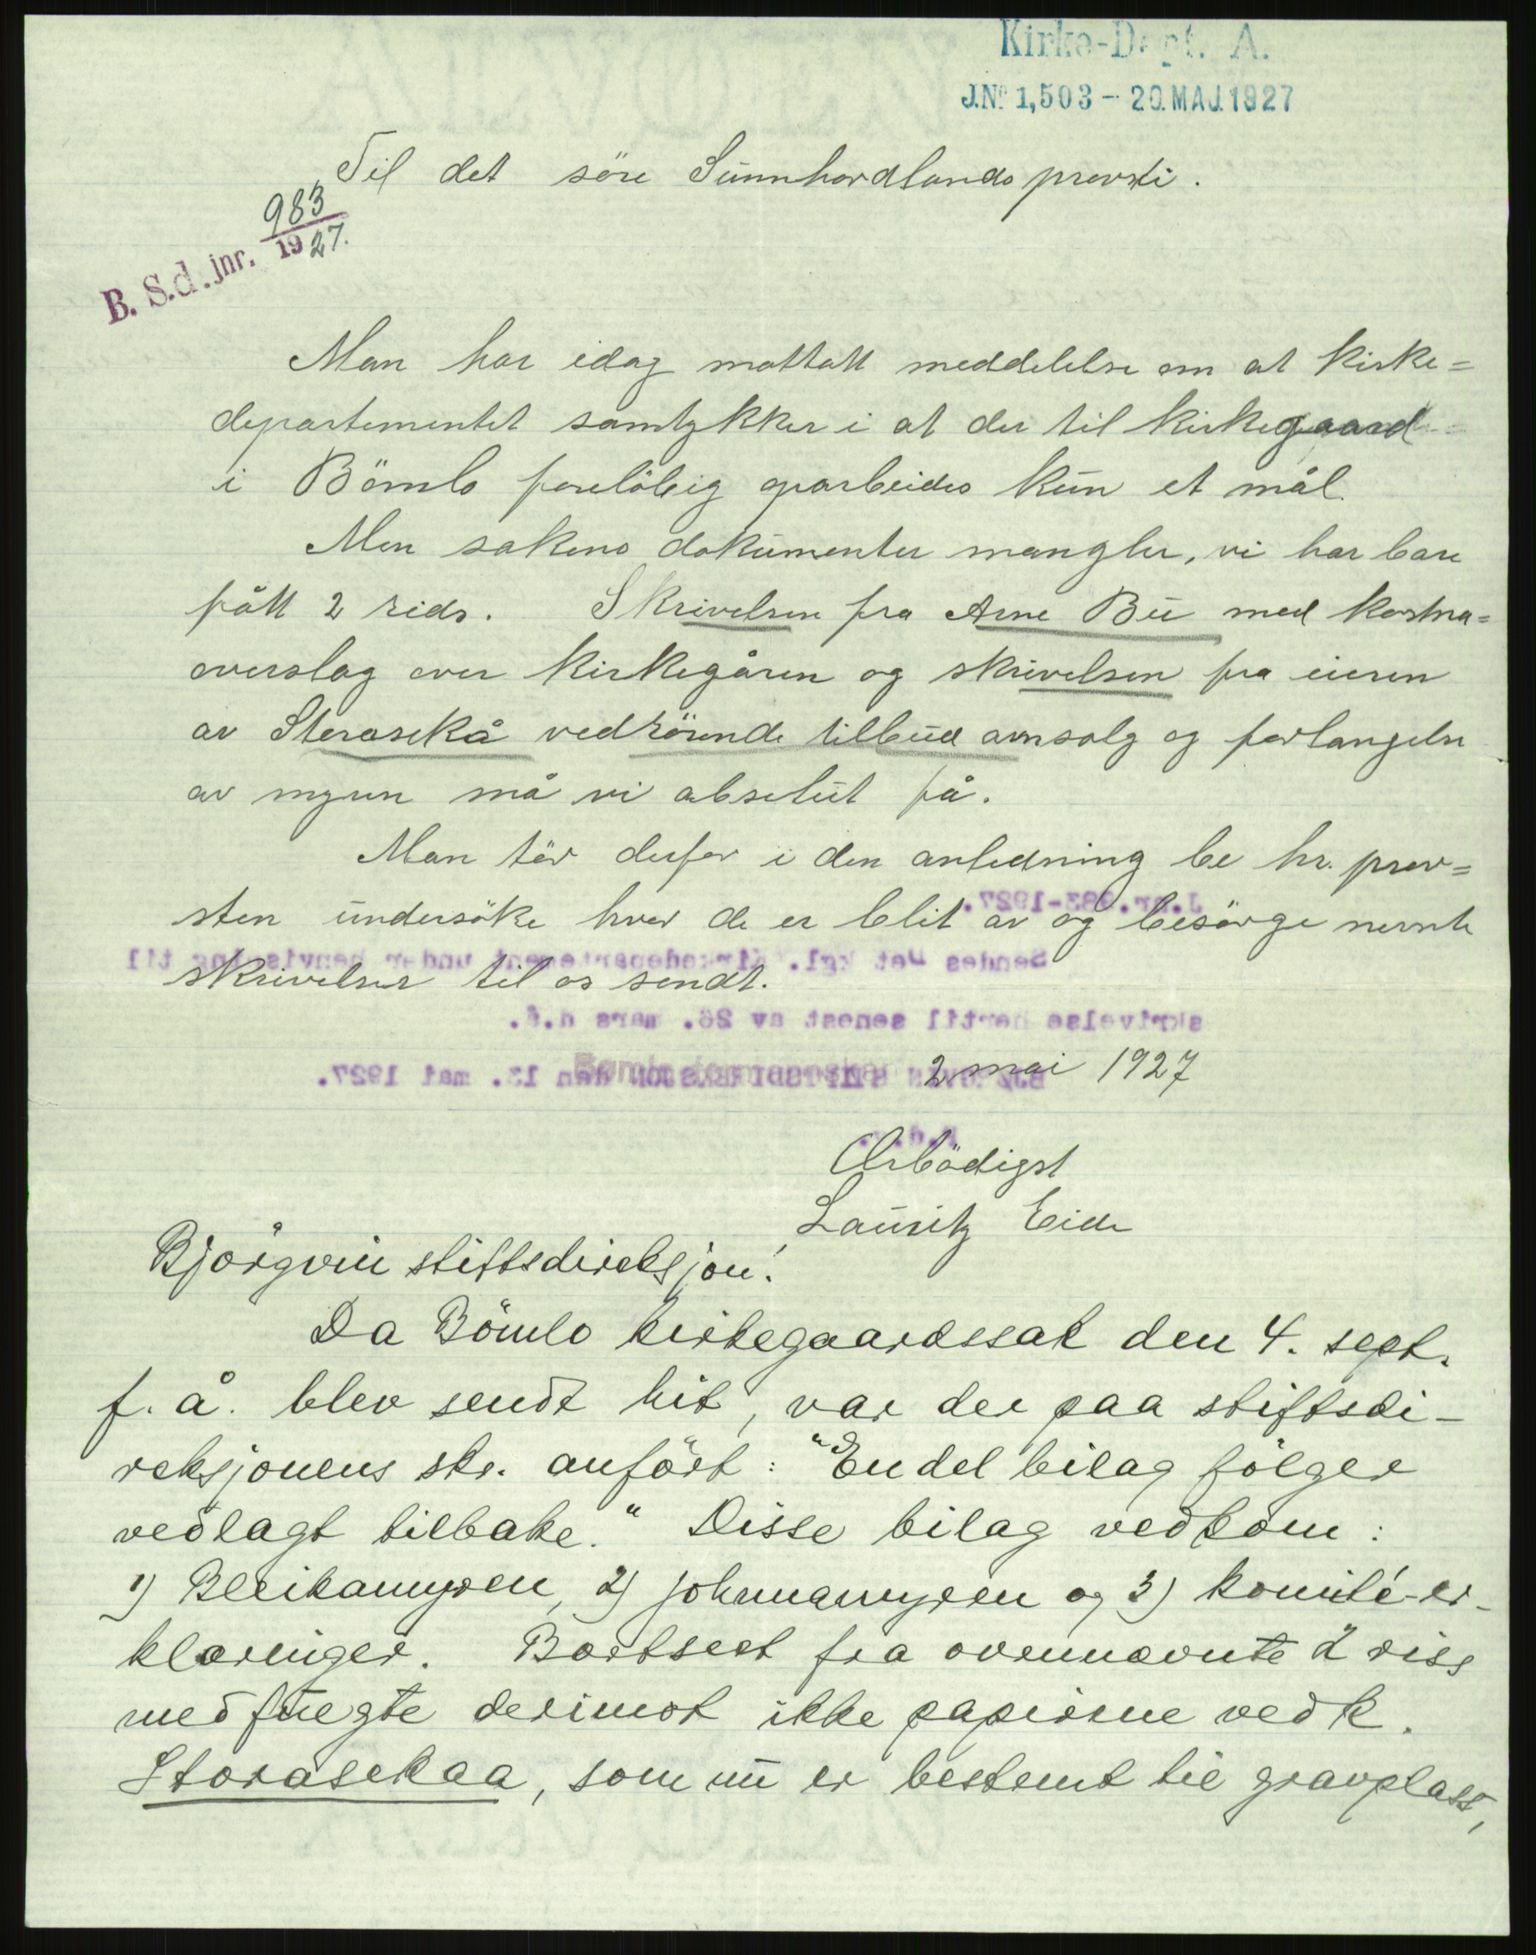 Kirke-Dept. A.
J.Nº 1,503 - 20. MAJ. 1927
Til det söre Sunnhordlands provsti.
B. S.d. jnr. 983
1927.
Man har idag mottatt meddelelse om at kirke=
departementet samtykker i at der til kirkegaard
i Bömlo foreløbig oparbeides kun et mål.
Men sakens dokumenter mangler, vi har bare
fått 2 rids. Skrivelsen fra Arne Bu med kostna=
overslag over kirkegåren og skrivelsen fra eieren
av Storasekå vedrörende tilbud om salg og forlangelse
av myren må vi absolut få.
Man tör derfor i den anledning be hr. prov=
J.nr. 983-1927.
sten undersöke hvor de er blit av og besörge nevnte
Sendes Det kgl. Kirkedepartement under henvisning til
skrivelser til os sendt.
skrivelse hertil senest av 26. mars d.å.
2 mai 1927
BJØRGVIN STIFTSDIREKSJON den 13. mai 1927.
Ærbödigst
Lauritz Eide
Bjørgvin stiftsdireksjon!
Da Bömlo kirkegaardssak den 4. sept.
f. å. blev sendt hit, var der paa stiftsdi-
reksjonens skr. anfört: "En del bilag fölger
vedlagt tilbake." Disse bilag vedkom:
1) Bleikamyren, 2) Johnnamyren og 3) komité-er-
klæringer. Bortsest fra ovennævnte 2 riss
medfuegte derimot ikke papirene vedk.
Storasekaa, som nu er bestemt til gravplass,